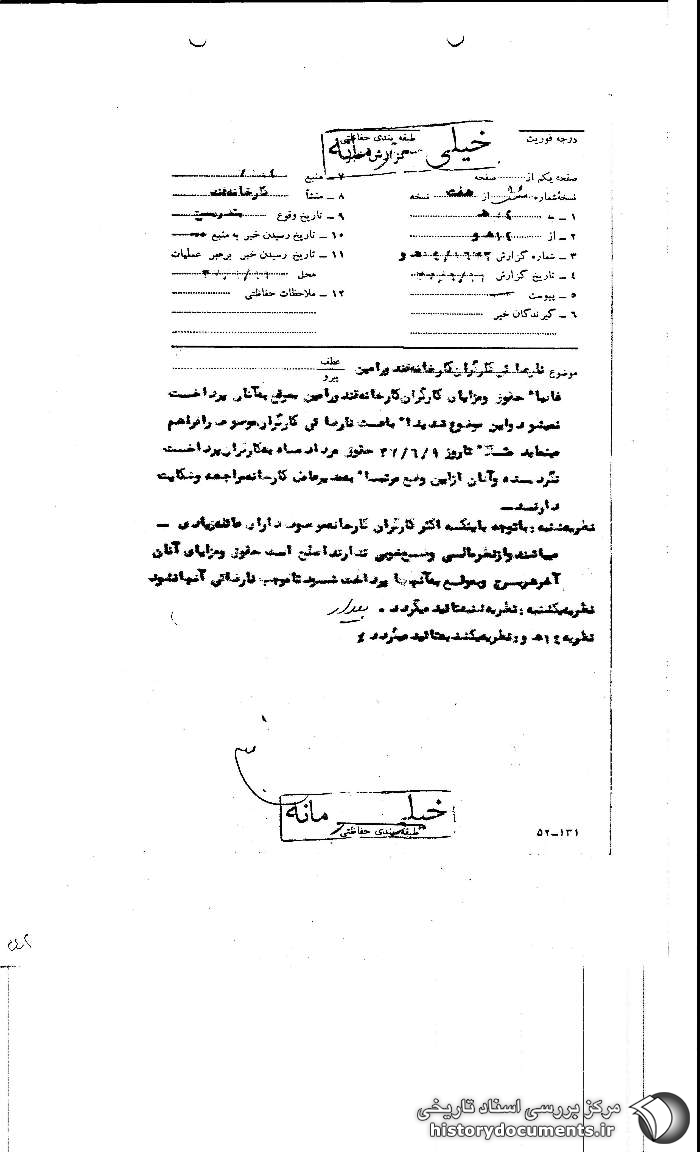 درجه فوریت
طبقه بندی حفاظتی
خیلی محرمانه
گزارش خبر
صفحه یکم از صفحه
نسخه شماره از هفت نسخه
۱ ـ به
۲ ـ از
۳ ـ شماره گزارش
۴ ـ تاریخ گزارش
۵ ـ پیوست
۶ ـ گیرندگان خبر
۷ ـ منبع
۸ ـ منشأ کارخانه قند
۹ ـ تاریخ وقوع
۱۰ ـ تاریخ رسیدن خبر به منبع
۱۱ ـ تاریخ رسیدن خبر برهبر عملیات
محل
۱۲ ـ ملاحظات حفاظتی
موضوع نارضائی کارگران کارخانه قند ورامین
عطف
پیرو
غالبا" حقوق ومزایای کارگران کارخانه قند ورامین بموقع به آنان پرداخت
نمیشود واین موضوع شدیدا" باعث نارضائی کارگران موصوف را فراهم
مینماید مثلا" تاروز ۳۷/۶/۹ حقوق مرداد ماه به کارگران پرداخت
نگردیده وآنان ازاین وضع مرتبا" به مدیرعامل کارخانه مراجعه وشکایت
دارند ـ
نظریه شنبه : باتوجه باینکه اکثر کارگران کارخانه موصوف دارای عائله زیادی ـ
میباشند وازنظر مالی وضع خوبی ندارند اصلح است حقوق ومزایای آنان
آخر هر برج وبموقع به آنها پرداخت شود تا موجب نارضائی آنها نشود
نظریه یکشنبه : نظریه شنبه تائید میگردد . بیدار
نظریه ۱۲ ه و : نظریه یکشنبه تائید میگردد
خیلی محرمانه
طبقه بندی حفاظتی
۵۲ـ۱۳۱
مرکز بررسی اسناد تاریخی
historydocuments.ir